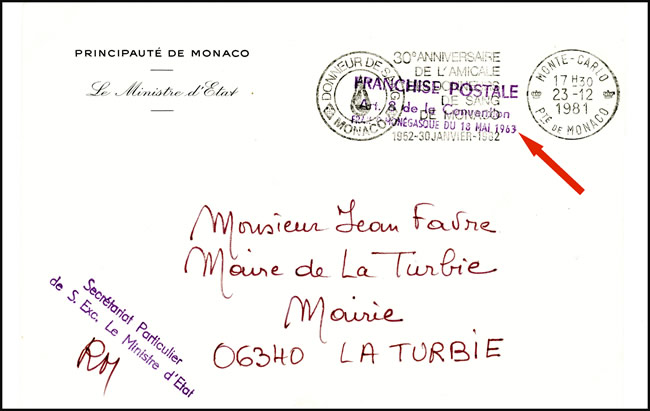 PRINCIPAUTÉ DE MONACO
Le Ministre d'Etat
DONNEUR DE SANG
MONACO
30e ANNIVERSAIRE
DE L'AMICALE
DE SANG
DE MONACO
1952-30 JANVIER-1982
FRANCHISE POSTALE
Art. 8 de la Convention
MONÉGASQUE DU 18 MAI 1963
MONTE-CARLO
17H30
23-12
1981
PTÉ DE MONACO
Monsieur Jean Favre
Maire de La Turbie
Mairie
06340 LA TURBIE
Secrétariat Particulier
de S. Exc. Le Ministre d'Etat
RM